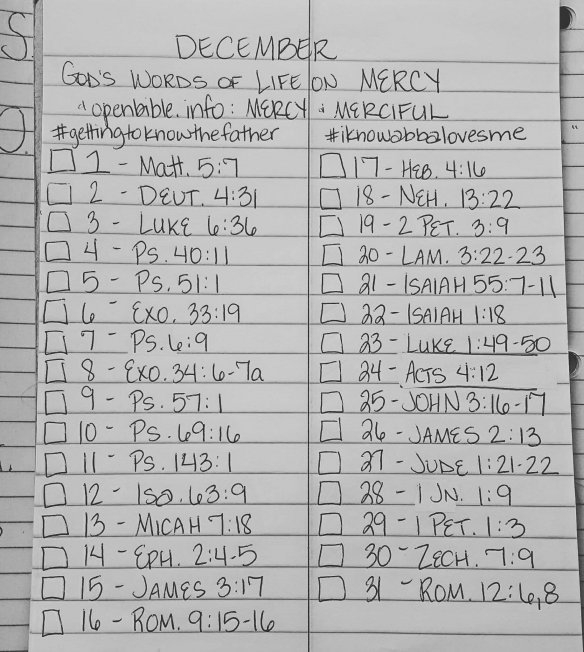 DECEMBER
GOD'S WORDS OF LIFE ON MERCY
openbible.info: MERCY & MERCIFUL
#gettingtoknowthefather
#iknowabbalovesme
1 - Matt. 5:7
2 - DEUT. 4:31
3 - LUKE 6:36
4 - Ps. 40:11
5 - Ps. 51:1
6 - EXO. 33:19
7 - Ps. 6:9
8 - EXO. 34:6-7a
9 - Ps. 57:1
10 - Ps. 69:16
11 - Ps. 143:1
12 - Isa. 63:9
13 - MICAH 7:18
14 - EPH. 2:4-5
15 - JAMES 3:17
16 - ROM. 9:15-16
17 - HEB. 4:16
18 - NEH. 13:22
19 - 2 PET. 3:9
20 - LAM. 3:22-23
21 - ISAIAH 55:7-11
22 - ISAIAH 1:18
23 - LUKE 1:49-50
24 - ACTS 4:12
25 - JOHN 3:16-17
26 - JAMES 2:13
27 - JUDE 1:21-22
28 - 1 JN. 1:9
29 - 1 PET. 1:3
30 - ZECH. 7:9
31 - ROM. 12:6,8